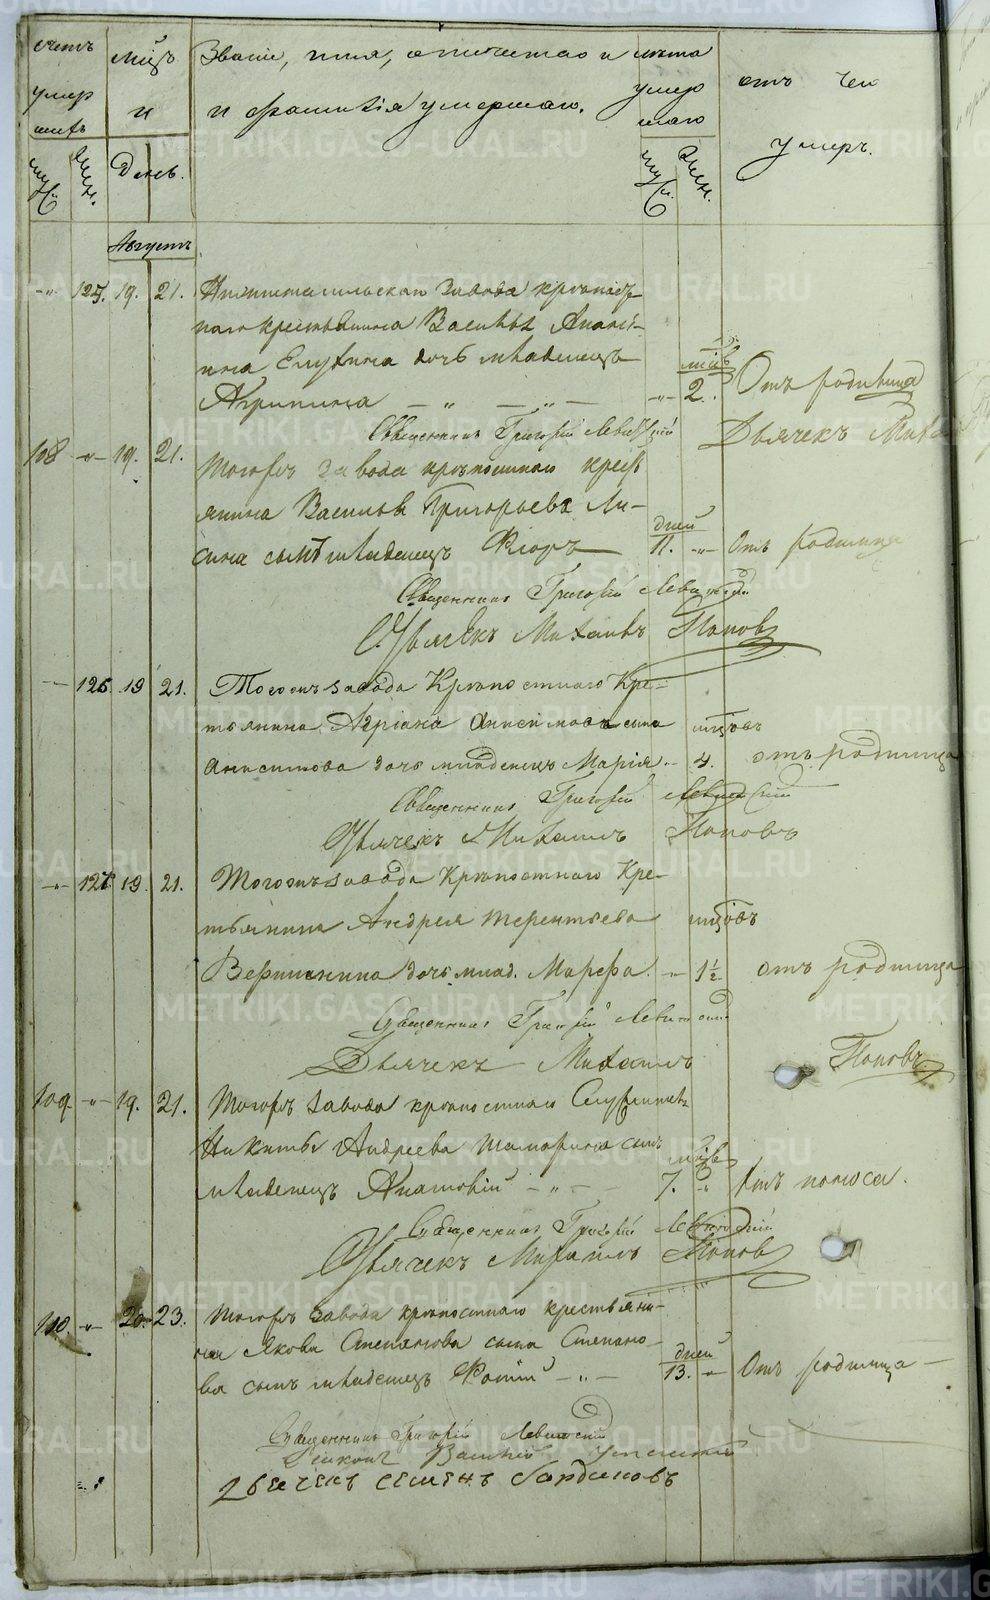 счетъ мѣцъ Званіе, имя, отчество и лѣта
умер и и фамилія умершаго. умер отъ чего
шихъ шаго умеръ.
муж. жен. День. муж. жен.
Августъ
-"- 125. 19. 21. завода крѣпост-
наго крестьянина
дочь младенецъ мцѣв
Агрипина — " — " — -"- 2. Отъ родимца
Священникъ Григорій Левитскій Дьячекъ
108 -"- 19. 21. Тогожъ завода крѣпостнаго крест
янина Василья Григорьева Ли-
сина сынъ младенецъ дней 11. -"- Отъ родимца
Священникъ Григорій Левитскій
Дьячекъ Михаилъ Поповъ
— 126 19 21. Тогожъ завода Крѣпостнаго Кре-
тьянина Адріана Анисимова сына мцовъ
Анисимова дочь младенецъ Марія -"- 4. отъ родимца
Священникъ Григорій Левитскій
Дьячекъ Михаилъ Поповъ
-"- 127 19. 21. Тогожъ завода Крѣпостнаго Кре-
тьянина Андрея Терентьева мцовъ
дочь млад. Марфа. -"- 1½ отъ родимца
Священникъ Григорій Левитскій
Дьячекъ Михаилъ Поповъ
109 -"- 19. 21. Тогожъ завода крѣпостнаго Служителя
Никиты Андреева сынъ мцѣв
младенецъ Анатолій - " - 7. " Отъ поноса.
Священникъ Григорій Левитскій
Дьячекъ Михаилъ Поповъ
110. -"- 20. 23. Тогожъ завода крѣпостнаго крестьяни-
на Якова Степанова сына Степано- дней
ва сынъ младенецъ Фотій — " — 13. -"- Отъ родимца —
Священникъ Григорій Левитскій
Діаконъ
дьячекъ семенъ
METRIKI.GASO-URAL.RU